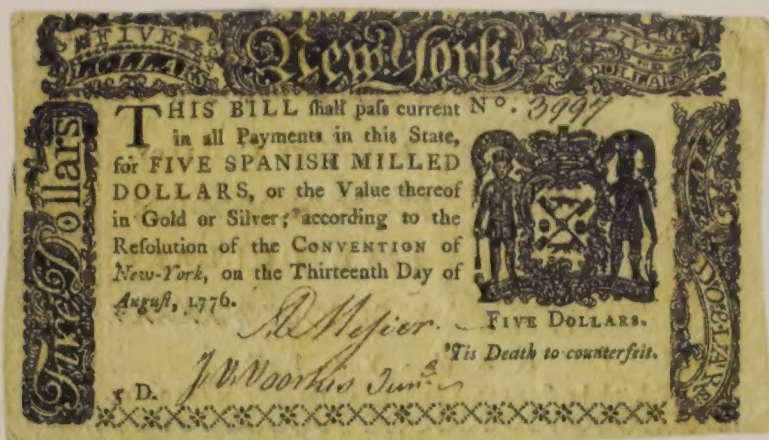 FIVE DOLLARS
New-York
FIVE DOLLARS
Five Dollars
THIS BILL ſhall paſs current
in all Payments in this State,
for FIVE SPANISH MILLED
DOLLARS, or the Value thereof
in Gold or Silver; according to the
Reſolution of the CONVENTION of
New-York, on the Thirteenth Day of
Auguſt, 1776.
Nº. 3997
FIVE DOLLARS.
'Tis Death to counterfeit.
A Mesier.
J V Voorhis Junr
5 D.
FIVE DOLLARS